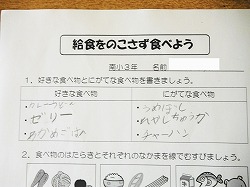 給食をのこさず食べよう
南小3年 名前
1．好きな食べ物とにがてな食べ物を書きましょう。
好きな食べ物 にがてな食べ物
・カレーうどん ・うめぼし
・ゼリー
・わかめごはん ・チャーハン
2．食べ物のはたらきとそれぞれのなかまを線でむすびましょう。